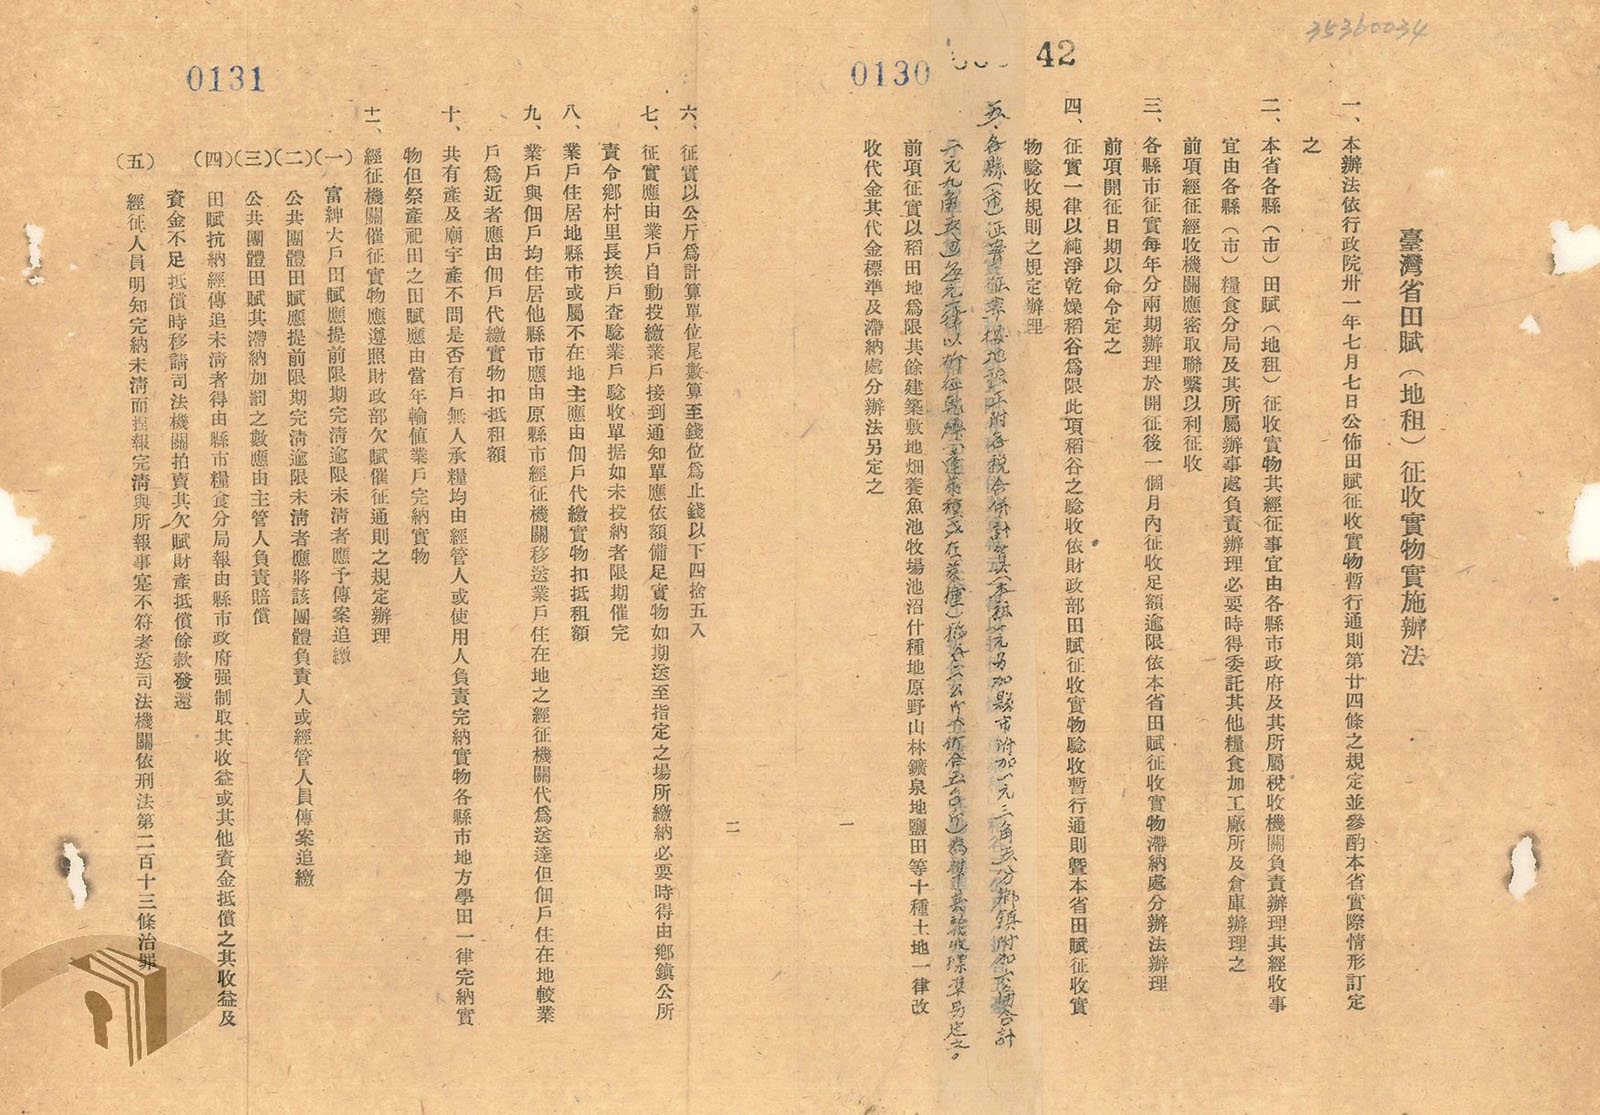 35360034
42
0130
臺灣省田賦（地租）征收實物實施辦法
一、本辦法依行政院卅一年七月七日公佈田賦征收實物暫行通則第廿四條之規定並參酌本省實際情形訂定
之
二、本省各縣（市）田賦（地租）征收實物其經征事宜由各縣市政府及其所屬稅收機關負責辦理其經收事
宜由各縣（市）糧食分局及其所屬辦事處負責辦理必要時得委託其他糧食加工廠所及倉庫辦理之
前項經征經收機關應密取聯繫以利征收
三、各縣市征實每年分兩期辦理於開征後一個月內征收足額逾限依本省田賦征收實物滯納處分辦法辦理
前項開征日期以命令定之
四、征實一律以純淨乾燥稻谷為限此項稻谷之驗收依財政部田賦征收實物驗收暫行通則暨本省田賦征收實
物驗收規則之規定辦理
五、各縣（市）征實征率按地租正附各稅合併計算（本租一元另加縣市附加一元三角五分鄉鎮附加合計
另定之。
前項征實以稻田地為限其餘建築敷地畑養魚池牧場池沼什種地原野山林鑛泉地鹽田等十種土地一律改
收代金其代金標準及滯納處分辦法另定之
一
0131
二
六、征實以公斤為計算單位尾數算至錢位為止錢以下四捨五入
七、征實應由業戶自動投繳業戶接到通知單應依額備足實物如期送至指定之場所繳納必要時得由鄉鎮公所
責令鄉村里長挨戶查驗業戶驗收單据如未投納者限期催完
八、業戶住居地縣市或屬不在地主應由佃戶代繳實物扣抵租額
九、業戶與佃戶均住居他縣市應由原縣市經征機關移送業戶住在地之經征機關代為送達但佃戶住在地較業
戶為近者應由佃戶代繳實物扣抵租額
十、共有產及廟宇產不問是否有戶無人承糧均由經管人或使用人負責完納實物各縣市地方學田一律完納實
物但祭產祀田之田賦應由當年輪值業戶完納實物
十一、經征機關催征實物應遵照財政部欠賦催征通則之規定辦理
（一）富紳大戶田賦應提前限期完清逾限未清者應予傳案追繳
（二）公共團體田賦應提前限期完清逾限未清者應將該團體負責人或經管人員傳案追繳
（三）公共團體田賦其滯納加罰之數應由主管人負責賠償
（四）田賦抗納經傳追未清者得由縣市糧食分局報由縣市政府强制取其收益或其他資金抵償之其收益及
資金不足抵償時移請司法機關拍賣其欠賦財產抵償餘款發還
（五）經征人員明知完納未清而捏報完清與所報事寔不符者送司法機關依刑法第二百十三條治罪